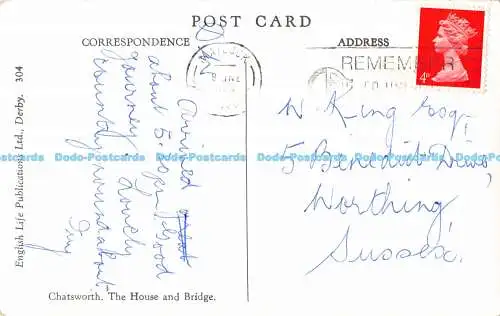 POST CARD
CORRESPONDENCE
ADDRESS
REMEMBER
4D
W King Esq.,
5 Benedict Drive,
Worthing,
Sussex.
Arrived
about 5.30pm. Good
journey. Lovely
country round about.
English Life Publications Ltd., Derby. 304
Chatsworth. The House and Bridge.
Dodo-Postcards Dodo-Postcards Dodo-Postcards Dodo-Postcards Dodo-Postcards Dodo-Postcards